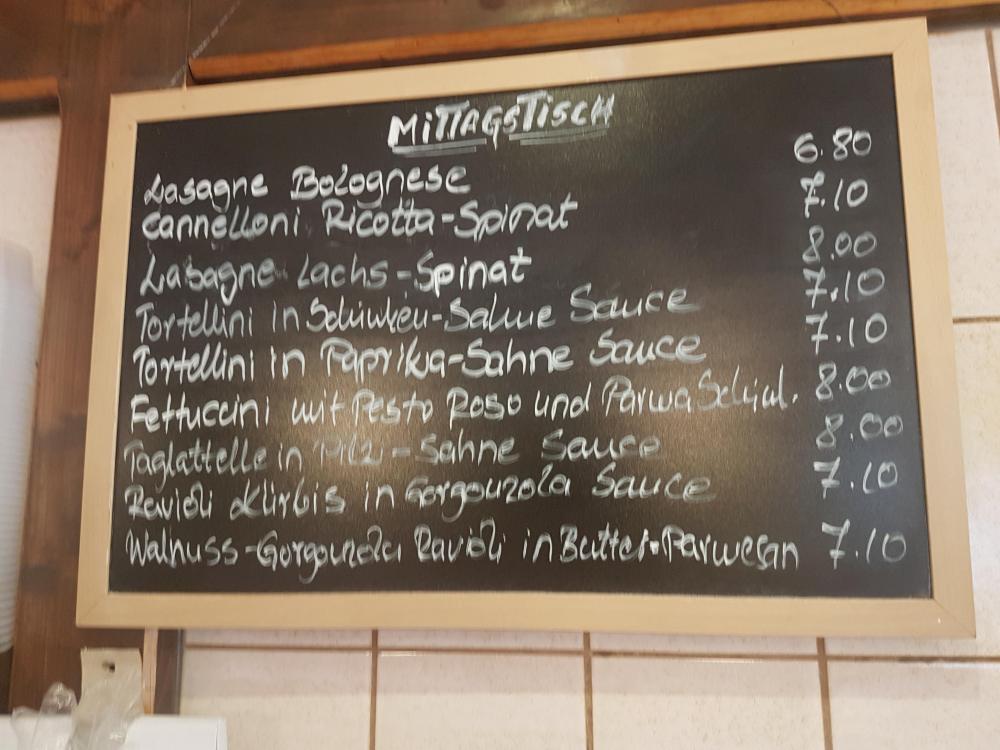 MITTAGSTISCH
Lasagne Bolognese 6.80
Cannelloni Ricotta-Spinat 7.10
Lasagne Lachs-Spinat 8.00
Tortellini in Schinken-Sahne Sauce 7.10
Tortellini in Paprika-Sahne Sauce 7.10
Fettuccini mit Pesto Roso und Parma Schin. 8.00
Taglattelle in Pilz-Sahne Sauce 8.00
Ravioli Kürbis in Gorgonzola Sauce 7.10
Walnuss-Gorgonzola Ravioli in Butter-Parmesan 7.10